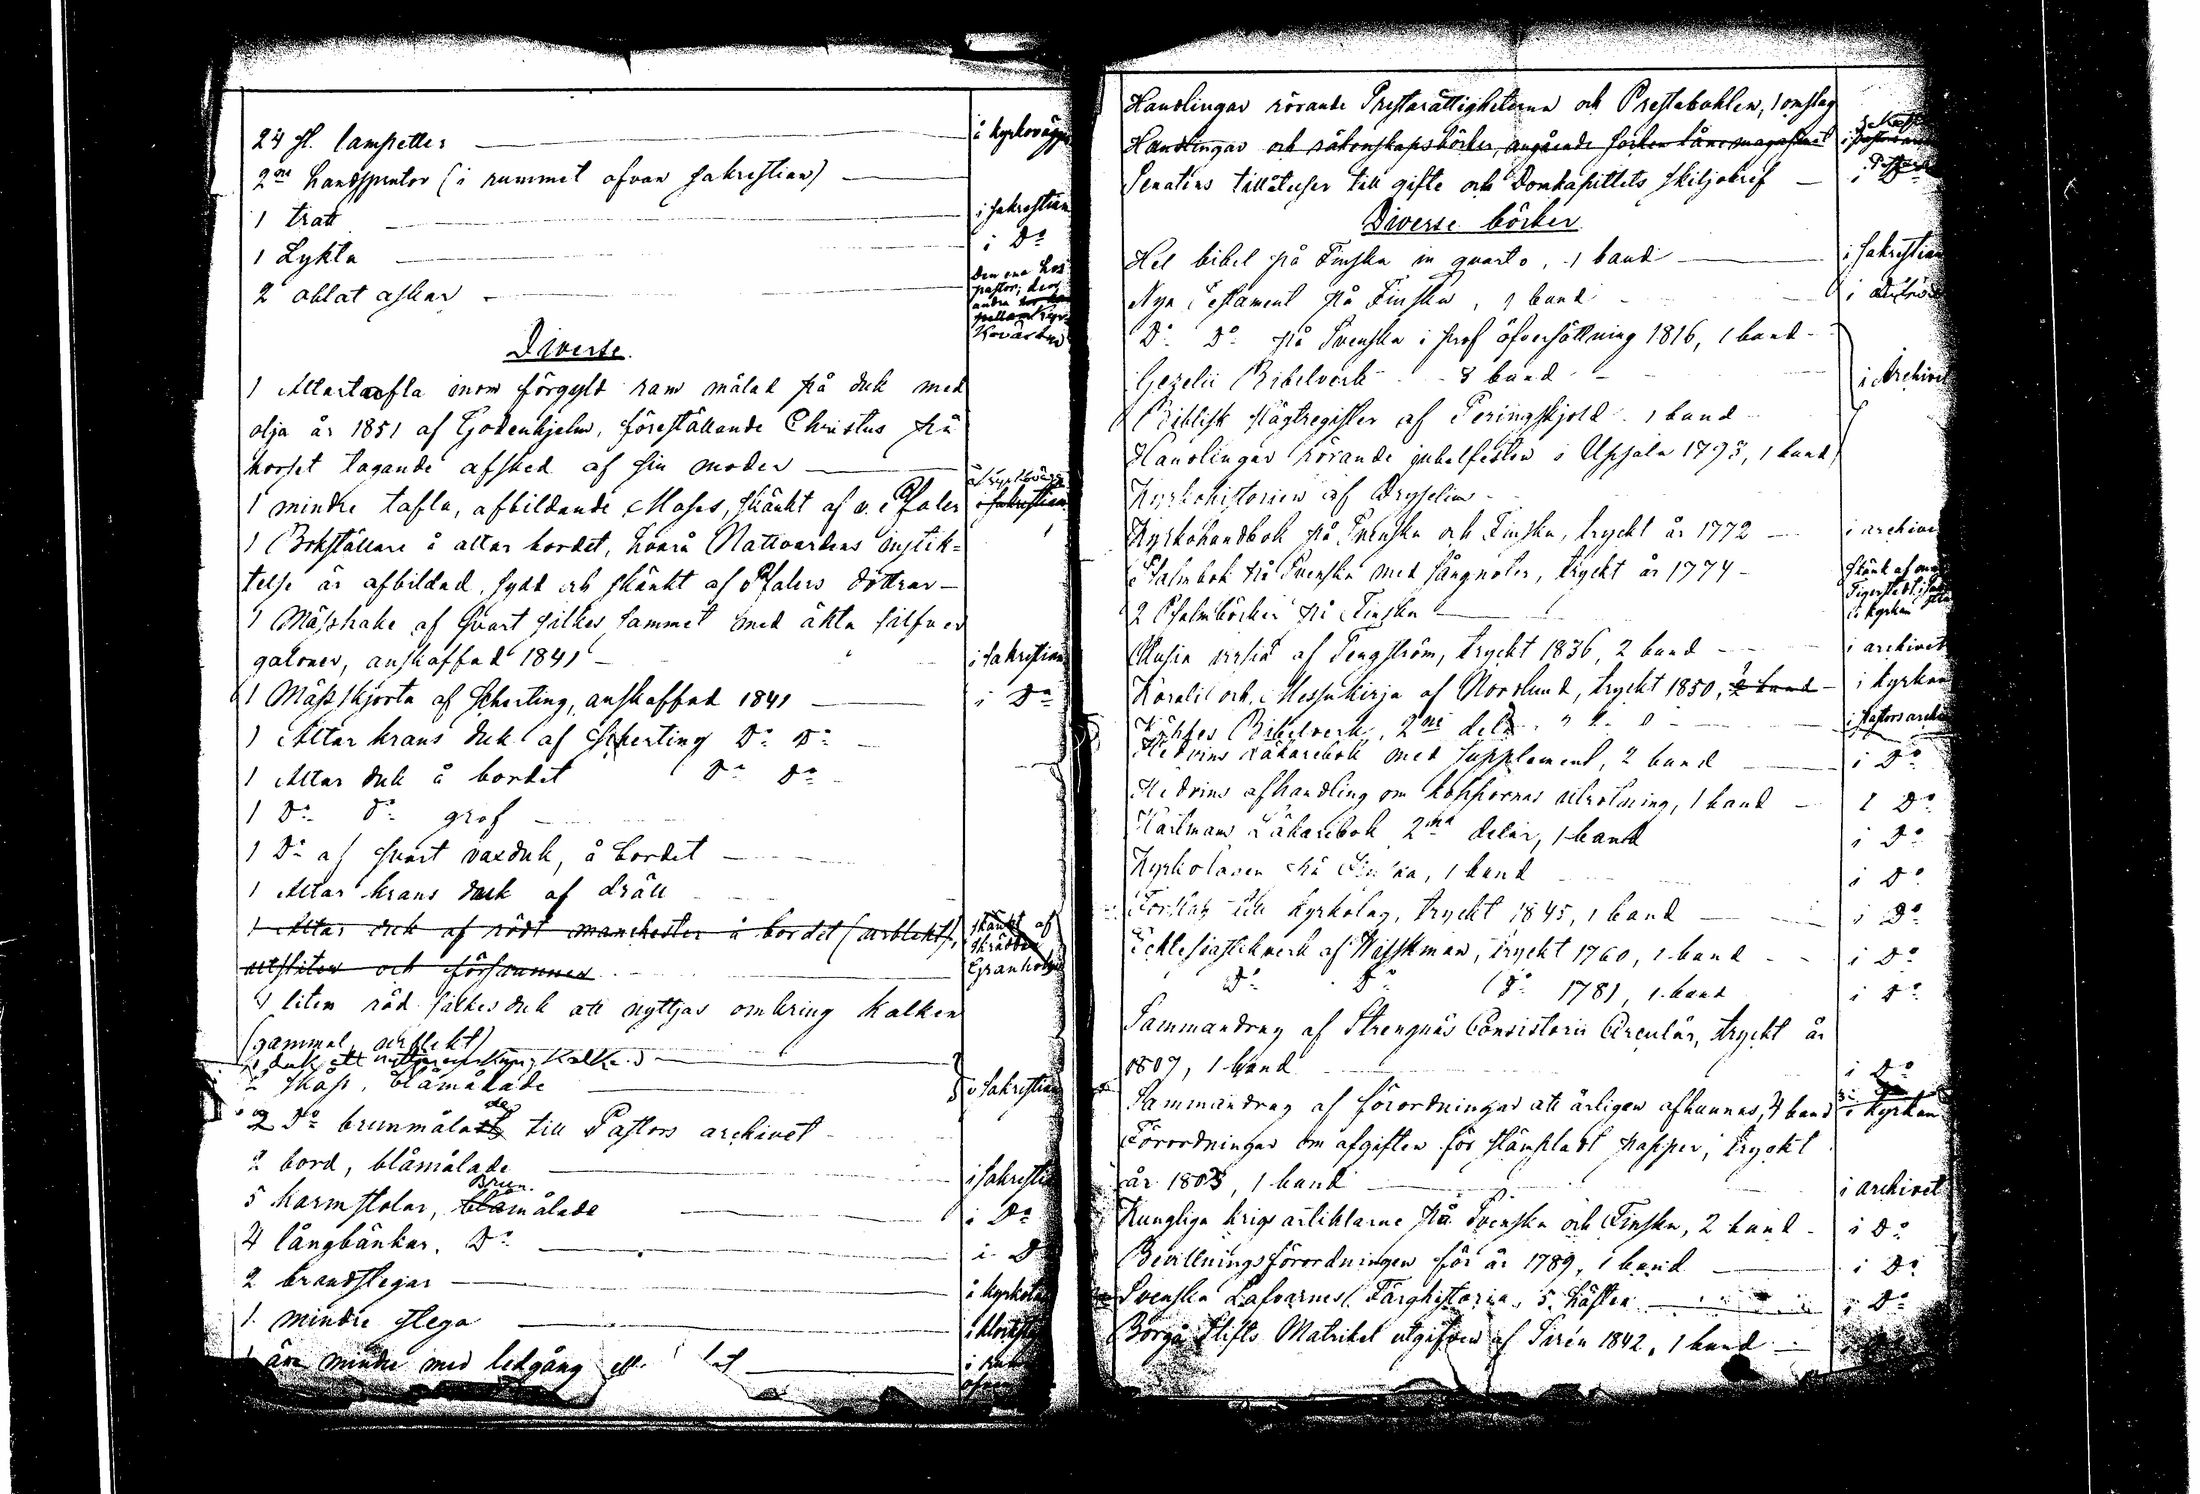 24 st. lampetter i kyrkoväggen
2ne handsprutor (i rummet ofvan sakristian)
1 tratt i sakristian
1 Lykta i Do
2 oblat askar Den ena hos
pastor; den
andra
Diverse.
1 Altartafla inom förgyld ram målad på duk med
olja år 1851 af Godenhjelm, föreställande Christus på
korset tagande afsked af sin moder
1 mindre tafla, afbildande Moses, skänkt af v. Pfaler i sakristian
1 Bokställare å altar bordet, hvarå Nattvardens instik-
telse är afbildad, sydd och skänkt af v. Pfalers döttrar
1 Mässhake af svart silkes sammet med äkta silfver
galoner, anskaffad 1841 i sakristian
1 Mässkjorta af Scherting, anskaffad 1841 i Do
1 Altar krans duk af Scherting Do Do
1 Altar duk å bordet Do Do
1 Do Do grof
1 Do af svart vaxduk, å bordet
1 Altar krans duk af dräll
1 Altar duk af rödt manchester å bordet (urblekt), skänkt af
utsliten och försvunnen skräddar Granholm
1 liten röd silkesduk att nyttjas omkring kalken
(gammal, urblekt)
1 duk att nyttjas omkring Kalken
2 skåp, blåmålade i sakristian
2 Do brunmålade till Pastors archivet
2 bord, blåmålade i sakristian
5 karmstolar, blåmålade Brun. i Do
4 långbänkar. Do i Do
2 brandstegar å kyrkotaket
1 mindre stega
1 än mindre med ledgång
Handlingar rörande Prestarättigheterna och Prestabohlen, 1 omslag
Handlingar och räkenskapsböcker, angående socken lånemagasinet
Senatens tillåtelser till gifte och Domkapitlets skiljobref i Do
Diverse böcker
Hel bibel på Finska in quarto, 1 band i sakristian
Nya Testament på Finska, 1 band
Do Do på Svenska i prof öfversättning 1816, 1 band
Gezelii Bibelverk 8 band i Archivet
Biblisk slägtregister af Peringskjold 1 band
Handlingar rörande jubelfesten i Upsala 1793, 1 band
Kyrkohistorien af Dryselius
Kyrkohandbok på Svenska och Finska, tryckt år 1772 i archivet
Psalmbok på Svenska med sångnoter, tryckt år 1774
2 Psalmböcker på Finska i kyrkan
af Tengström, tryckt 1836, 2 band i archivet
Koralit och Messukirja af Nordlund, tryckt 1850, 2 band i kyrkan
Bibelverk, 2ne delar i Pastors archiv
Hedrins Läkarebok med supplement, 2 band i Do
Hedrins afhandling om koppornas utrotning, 1 band i Do
Hartmans Läkarebok 2ne delar, 1 band i Do
Kyrkolagen på Finska, 1 band i Do
Förslag till kyrkolag, tryckt 1845, 1 band i Do
Ecklesiastikverk af Wasskman, tryckt 1760, 1 band i Do
Do Do Do 1781, 1 band i Do
Sammandrag af Strengnäs Consistorii Circulär, tryckt år
1807, 1 band i Do
Sammandrag af förordningar att årligen afkunnas, 4 band i kyrkan
Förordningar om afgiften för stämpladt papper, tryckt
år 1803, 1 band i archivet
Kungliga krigsartiklarne på Svenska och Finska, 2 band i Do
Bevillningsförordningen för år 1789, 1 band i Do
Svenska Lafvarnes Färghistoria, 5 häften i Do
Borgå Stifts Matrikel utgifven af Sirén 1842, 1 band